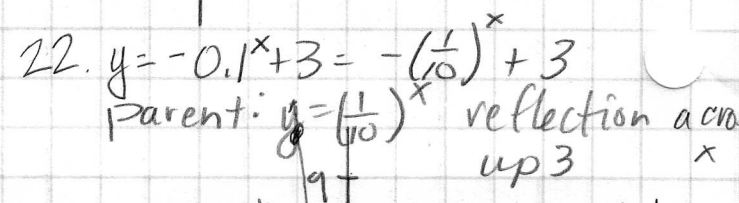 22. y = -0.1^x + 3 = -(1/10)^x + 3
parent: y = (1/10)^x reflection acro
up 3 x
9